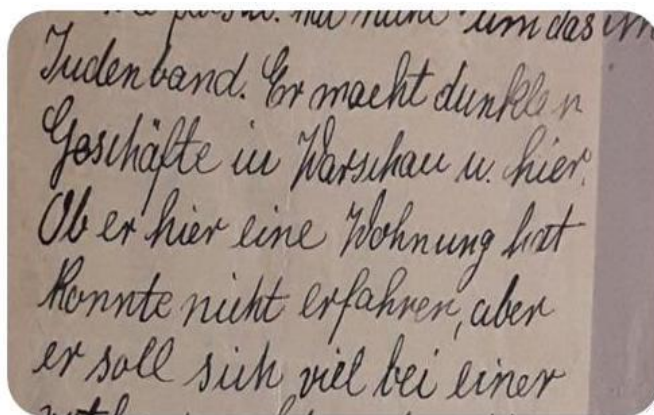 um das
Judenband. Er macht dunklen
Geschäfte in Warschau u. hier.
Ob er hier eine Wohnung hat
konnte nicht erfahren, aber
er soll sich viel bei einer